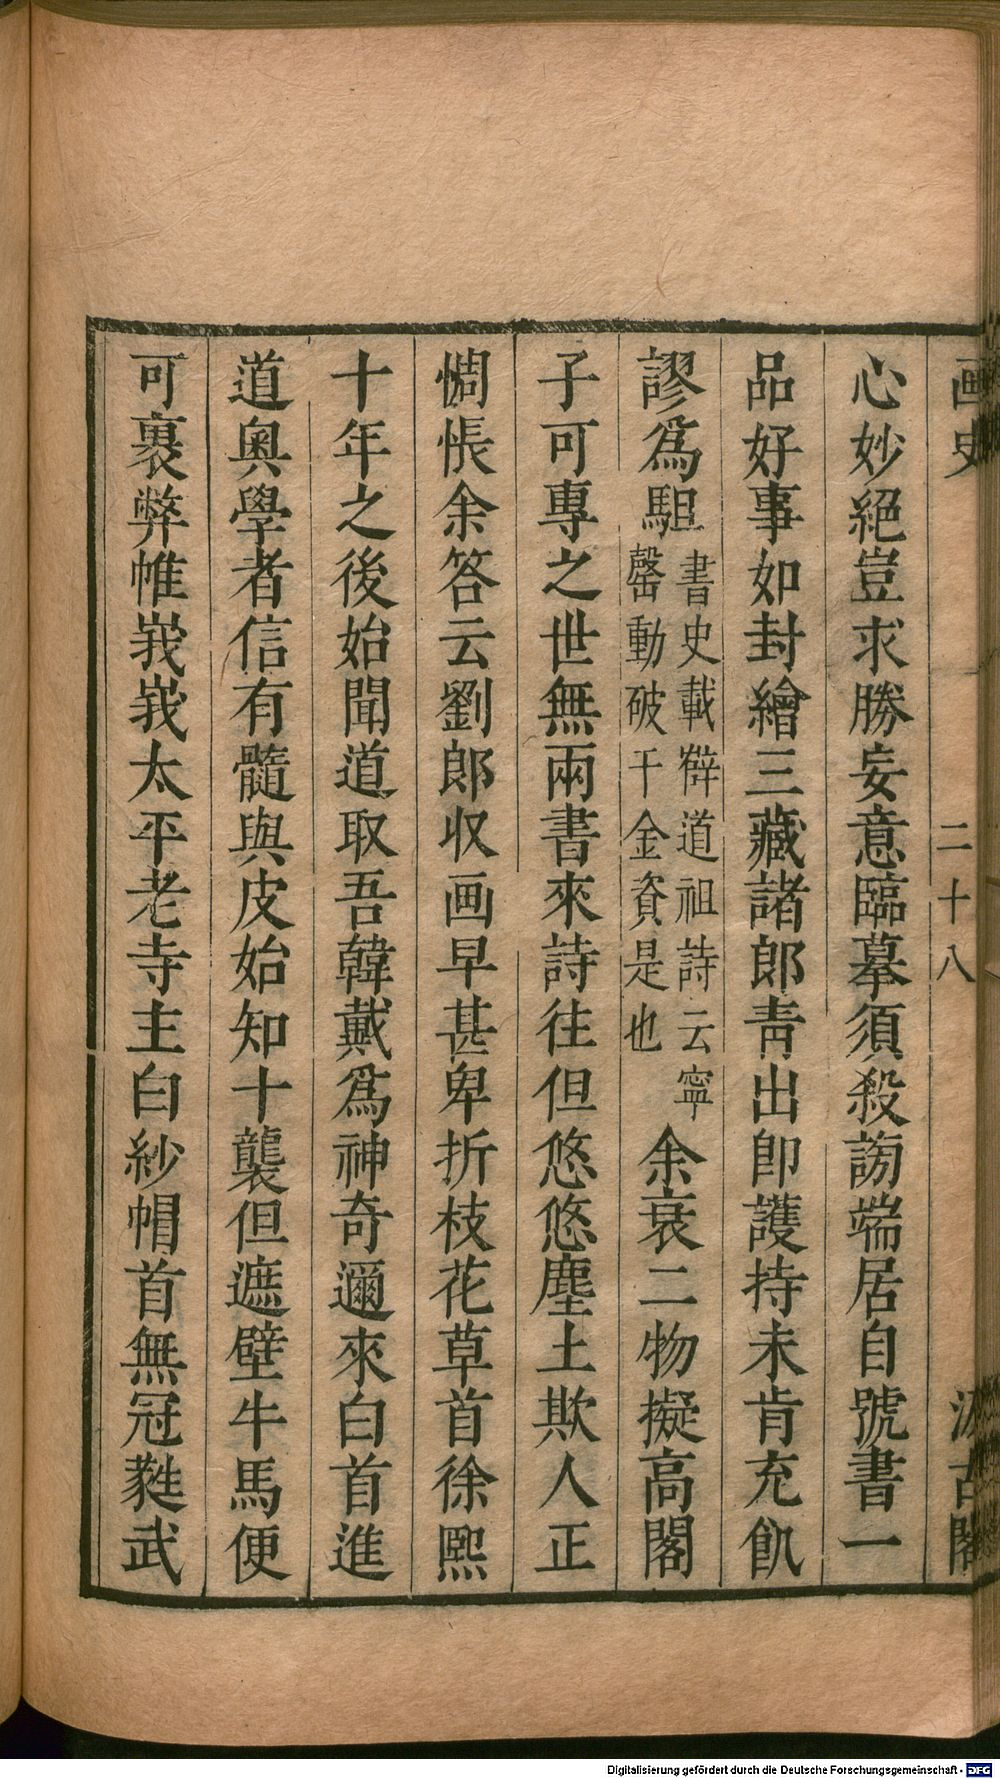 画史 二十八 汲古閣
心妙絕豈求勝妄意臨摹須殺謗端居自號書一
品好事如封繪三藏諸郎青出卽護持未肯充飢
謬爲駔書史載薛道祖詩云寧
罄動破千金資是也余衰二物擬高閣
子可專之世無兩書來詩往但悠悠塵土欺人正
惆悵余答云劉郎収画早甚卑折枝花草首徐熙
十年之後始聞道取吾韓戴爲神奇邇來白首進
道奧學者信有髓與皮始知十襲但遮壁牛馬便
可裹弊帷峩峩太平老寺主白紗帽首無冠蕤武
Digitalisierung gefördert durch die Deutsche Forschungsgemeinschaft - DFG